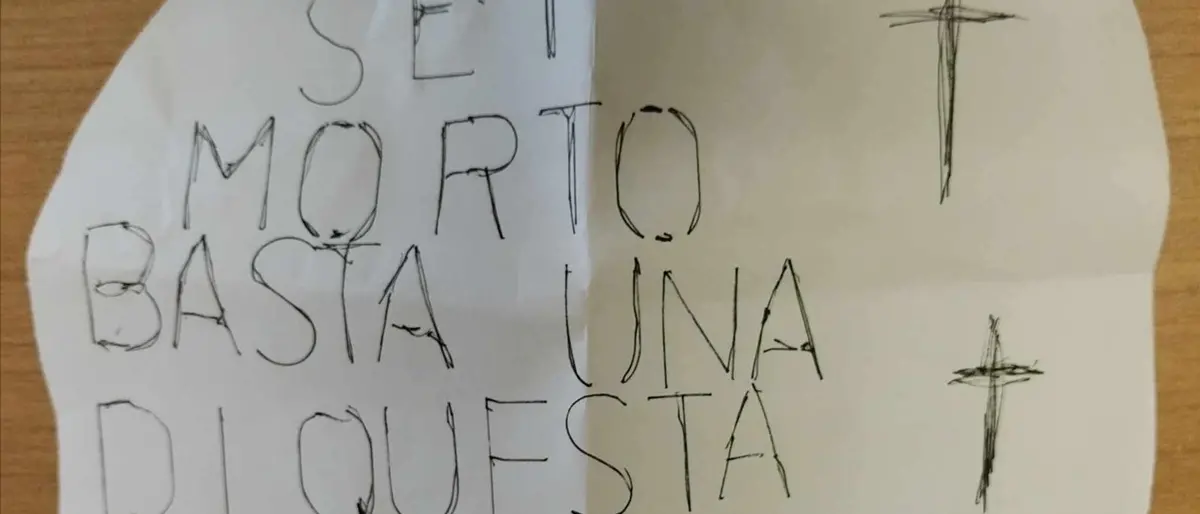 SEI
MORTO
BASTA UNA
DI QUESTA